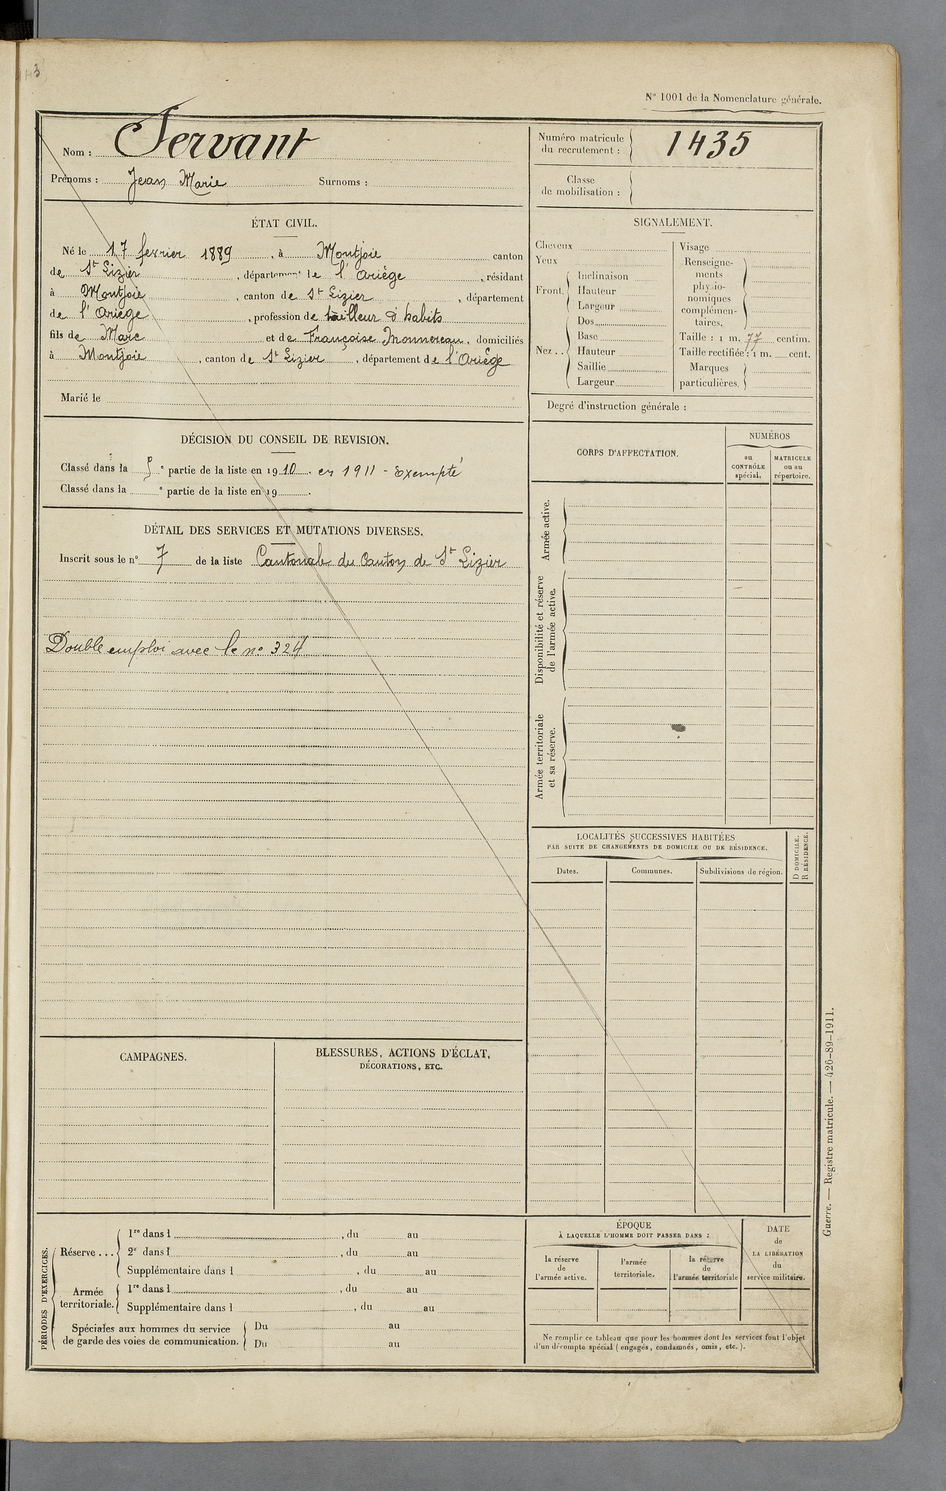 N° 1001 de la Nomenclature générale.
Nom : Servant
Prénoms : Jean Marie Surnoms :
Numéro matricule du recrutement : 1435
Classe de mobilisation :
ÉTAT CIVIL.
Né le 17 fevrier 1889, à Montjoie canton
de St Lizier, département de l'Ariège, résidant
à Montjoie, canton de St Lizier, département
de l'Ariège, profession de tailleur d'habits
fils de Marc et de Françoise Monnereau, domiciliés
à Montjoie, canton de St Lizier, département de l'Ariège
Marié le
SIGNALEMENT.
Cheveux
Yeux
Front. Inclinaison
Hauteur
Largeur
Nez.. Dos
Base
Hauteur
Saillie
Largeur
Visage
Renseignements physionomiques complémentaires.
Taille : 1 m. 77 centim.
Taille rectifiée : 1 m. cent.
Marques particulières.
Degré d'instruction générale :
DÉCISION DU CONSEIL DE REVISION.
Classé dans la 5e partie de la liste en 1910 en 1911 - Exempté
Classé dans la e partie de la liste en 19 .
DÉTAIL DES SERVICES ET MUTATIONS DIVERSES.
Inscrit sous le n° 7 de la liste Cantonale du Canton de St Lizier
Double emploi avec le no 324
CORPS D'AFFECTATION.
NUMÉROS
au CONTRÔLE spécial.
MATRICULE ou au répertoire.
Armée active.
Disponibilité et réserve de l'armée active.
Armée territoriale et sa réserve.
LOCALITÉS SUCCESSIVES HABITÉES
PAR SUITE DE CHANGEMENTS DE DOMICILE OU DE RÉSIDENCE.
Dates. Communes. Subdivisions de région.
D DOMICILE.
R RÉSIDENCE.
CAMPAGNES.
BLESSURES, ACTIONS D'ÉCLAT,
DÉCORATIONS, ETC.
PÉRIODES D'EXERCICES.
Réserve... 1re dans l , du au
2e dans l , du au
Supplémentaire dans l , du au
Armée territoriale. 1re dans l , du au
Supplémentaire dans l , du au
Spéciales aux hommes du service de garde des voies de communication. Du au
Du au
ÉPOQUE
À LAQUELLE L'HOMME DOIT PASSER DANS :
la réserve de l'armée active.
l'armée territoriale.
la réserve de l'armée territoriale
DATE de LA LIBÉRATION du service militaire.
Ne remplir ce tableau que pour les hommes dont les services font l'objet
d'un décompte spécial (engagés, condamnés, omis, etc.).
Guerre. — Registre matricule. — 426-89-1911.